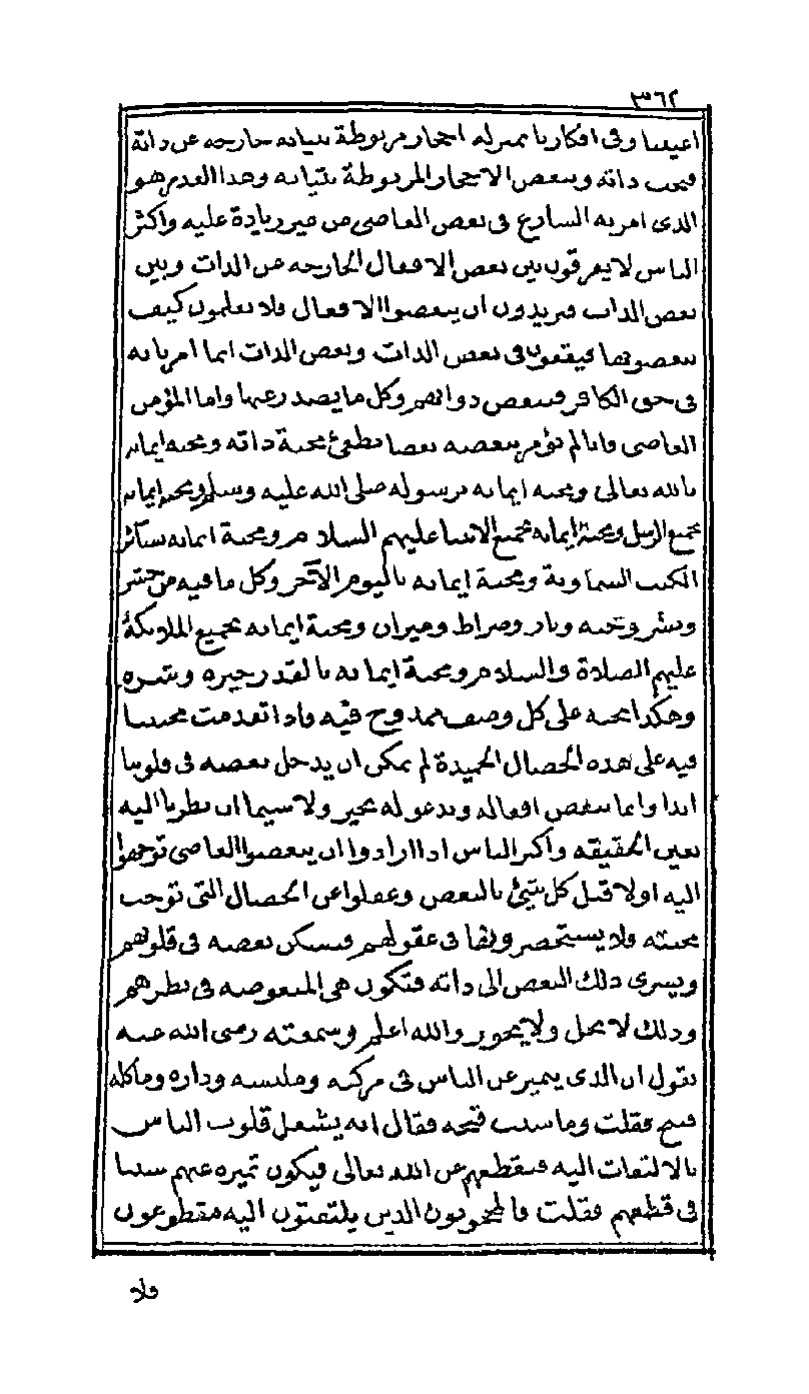 ٣٦٢
اعيننا وفى افكارنا بمنزلة احجار مربوطة بثيابه خارجه عن ذاته
فيحب ذاته ويبغض الاحجار المربوطة بثيابه وهذا القدر هو
الذى امر به الشارع فى بغض العاصى من غير زيادة عليه واكثر
الناس لا يفرقون بين بغض الافعال الخارجه عن الذات وبين
بغض الذات فيريدون ان يبغضوا الافعال فلا يعلمون كيف
يبغضونها فيقعون فى بغض الذات وبغض الذات انما امرنا به
فى حق الكافر فنبغض ذواتهم وكل ما يصدر عنها واما المؤمن
العاصى فانا لم نؤمر ببغضه بغضا يطفئ محبة ذاته ومحبه ايمانه
بالله تعالى ومحبه ايمانه برسوله صلى الله عليه وسلم ومحبه ايمانه
بجميع الرسل ومحبة ايمانه بجميع الانبيا عليهم السلام ومحبة ايمانه بسائر
الكتب السماوية ومحبة ايمانه باليوم الآخر وكل ما فيه من حشر
ونشر وجنه ونار وصراط وميزان ومحبة ايمانه بجميع الملائكة
عليهم الصلاة والسلام ومحبة ايمانه بالقدر خيره وشره
وهكذا نحبه على كل وصف ممدوح فيه فاذا تقدمت محبتنا
فيه على هذه الخصال الحميدة لم يمكن ان يدخل بغضه فى قلوبنا
ابدا وانما نبغض افعاله وندعو له بخير ولا سيما ان نظرنا اليه
بعين الحقيقه واكثر الناس اذا ارادوا ان يبغضوا العاصى توجهوا
اليه اولا قبل كل شئ بالبغض وغفلوا عن الخصال التى توجب
محبته فلا يستحضرونها فى عقولهم فيسكن بغضه فى قلوبهم
ويسرى ذلك البغض الى ذاته فتكون هى المبغوضه فى نظرهم
وذلك لا يحل ولا يجوز والله اعلم وسمعته رضى الله عنه
يقول ان الذى يتميز عن الناس فى مركبه وملبسه وداره وماكله
قبيح فقلت وما سبب قبحه فقال انه يشغل قلوب الناس
بالالتفات اليه فيقطعهم عن الله تعالى فيكون تميزه عنهم سببا
فى قطعهم فقلت فالمحجوبون الذين يلتفتون اليه مقطوعون
فلا